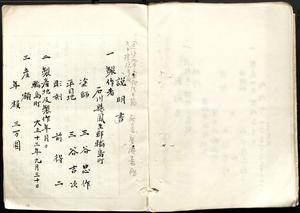 説明書
一 製作者
石川縣鳳至郡輪島町
塗師 三谷忠作
木地 三谷吉次
彫刻 前得二
二 製産地及製作年月日
輪島町 大正十三年九月三十日
三 産額
年額 三万圓